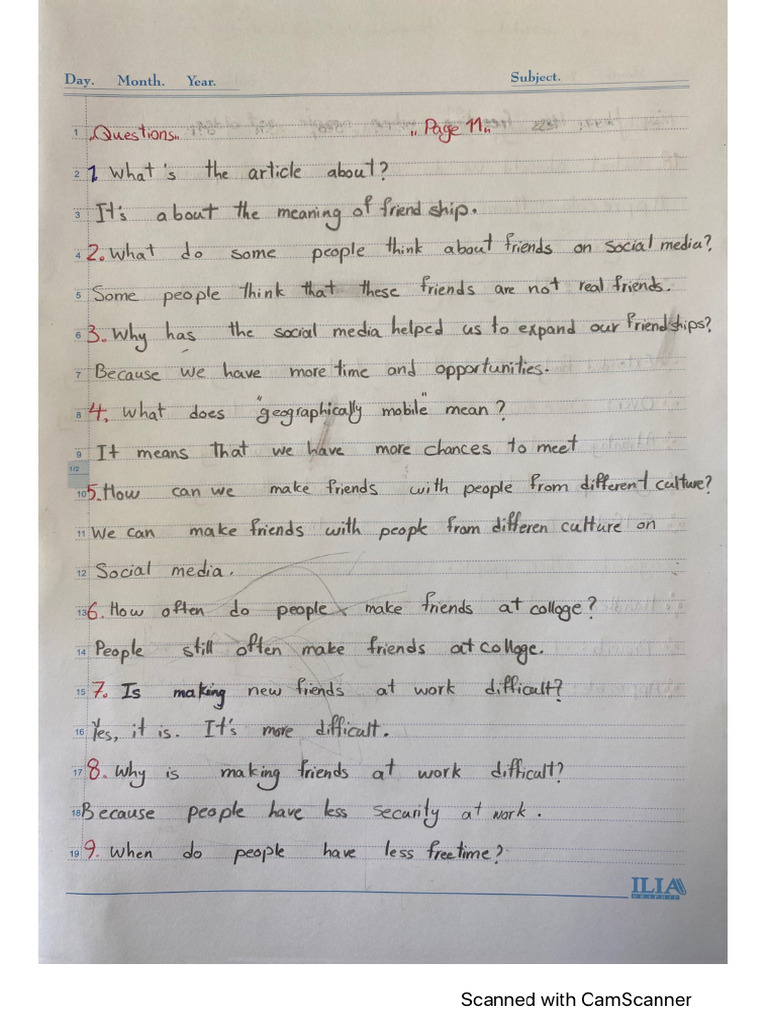 Day. Month. Year. Subject.
1 "Questions" "Page 11"
2 1 What's the article about?
3 It's about the meaning of friend ship.
4 2. What do some people think about friends on social media?
5 Some people think that these friends are not real friends.
6 3. Why has the social media helped us to expand our friendships?
7 Because we have more time and opportunities.
8 4. What does "geographically mobile" mean?
9 It means that we have more chances to meet
1/2
10 5. How can we make friends with people from different culture?
11 We can make friends with people from differen culture on
12 Social media.
13 6. How often do people make friends at colloge?
14 People still often make friends at colloge.
15 7. Is making new friends at work difficult?
16 Yes, it is. It's more difficult.
17 8. Why is making friends at work difficult?
18 Because people have less security at work.
19 9. When do people have less free time?
ILIA
Scanned with CamScanner